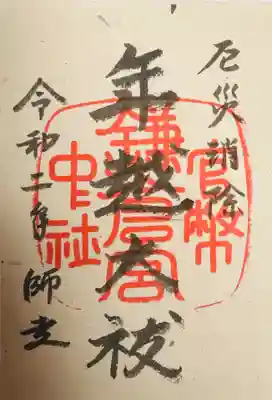 厄災消除
年越大祓
令和二年 師走
官幣
鎌倉宮
中社